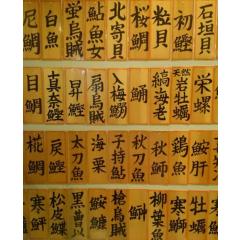 石垣貝
初鰹
粒貝
桜鯛
北寄貝
鮎魚女
蛍烏賊
白魚
尼鯛
栄螺
天然岩牡蠣
縞海老
鯒
入梅鰯
扇烏賊
昇鰹
真奈鰹
目鯛
鮟肝
鶏魚
秋刀魚
秋刀魚
子持鮎
海栗
太刀魚
戻鰹
椛鯛
牡蠣
寒鰤
柳葉魚
槍烏賊
鮟鱇
松皮鰈
寒鮃